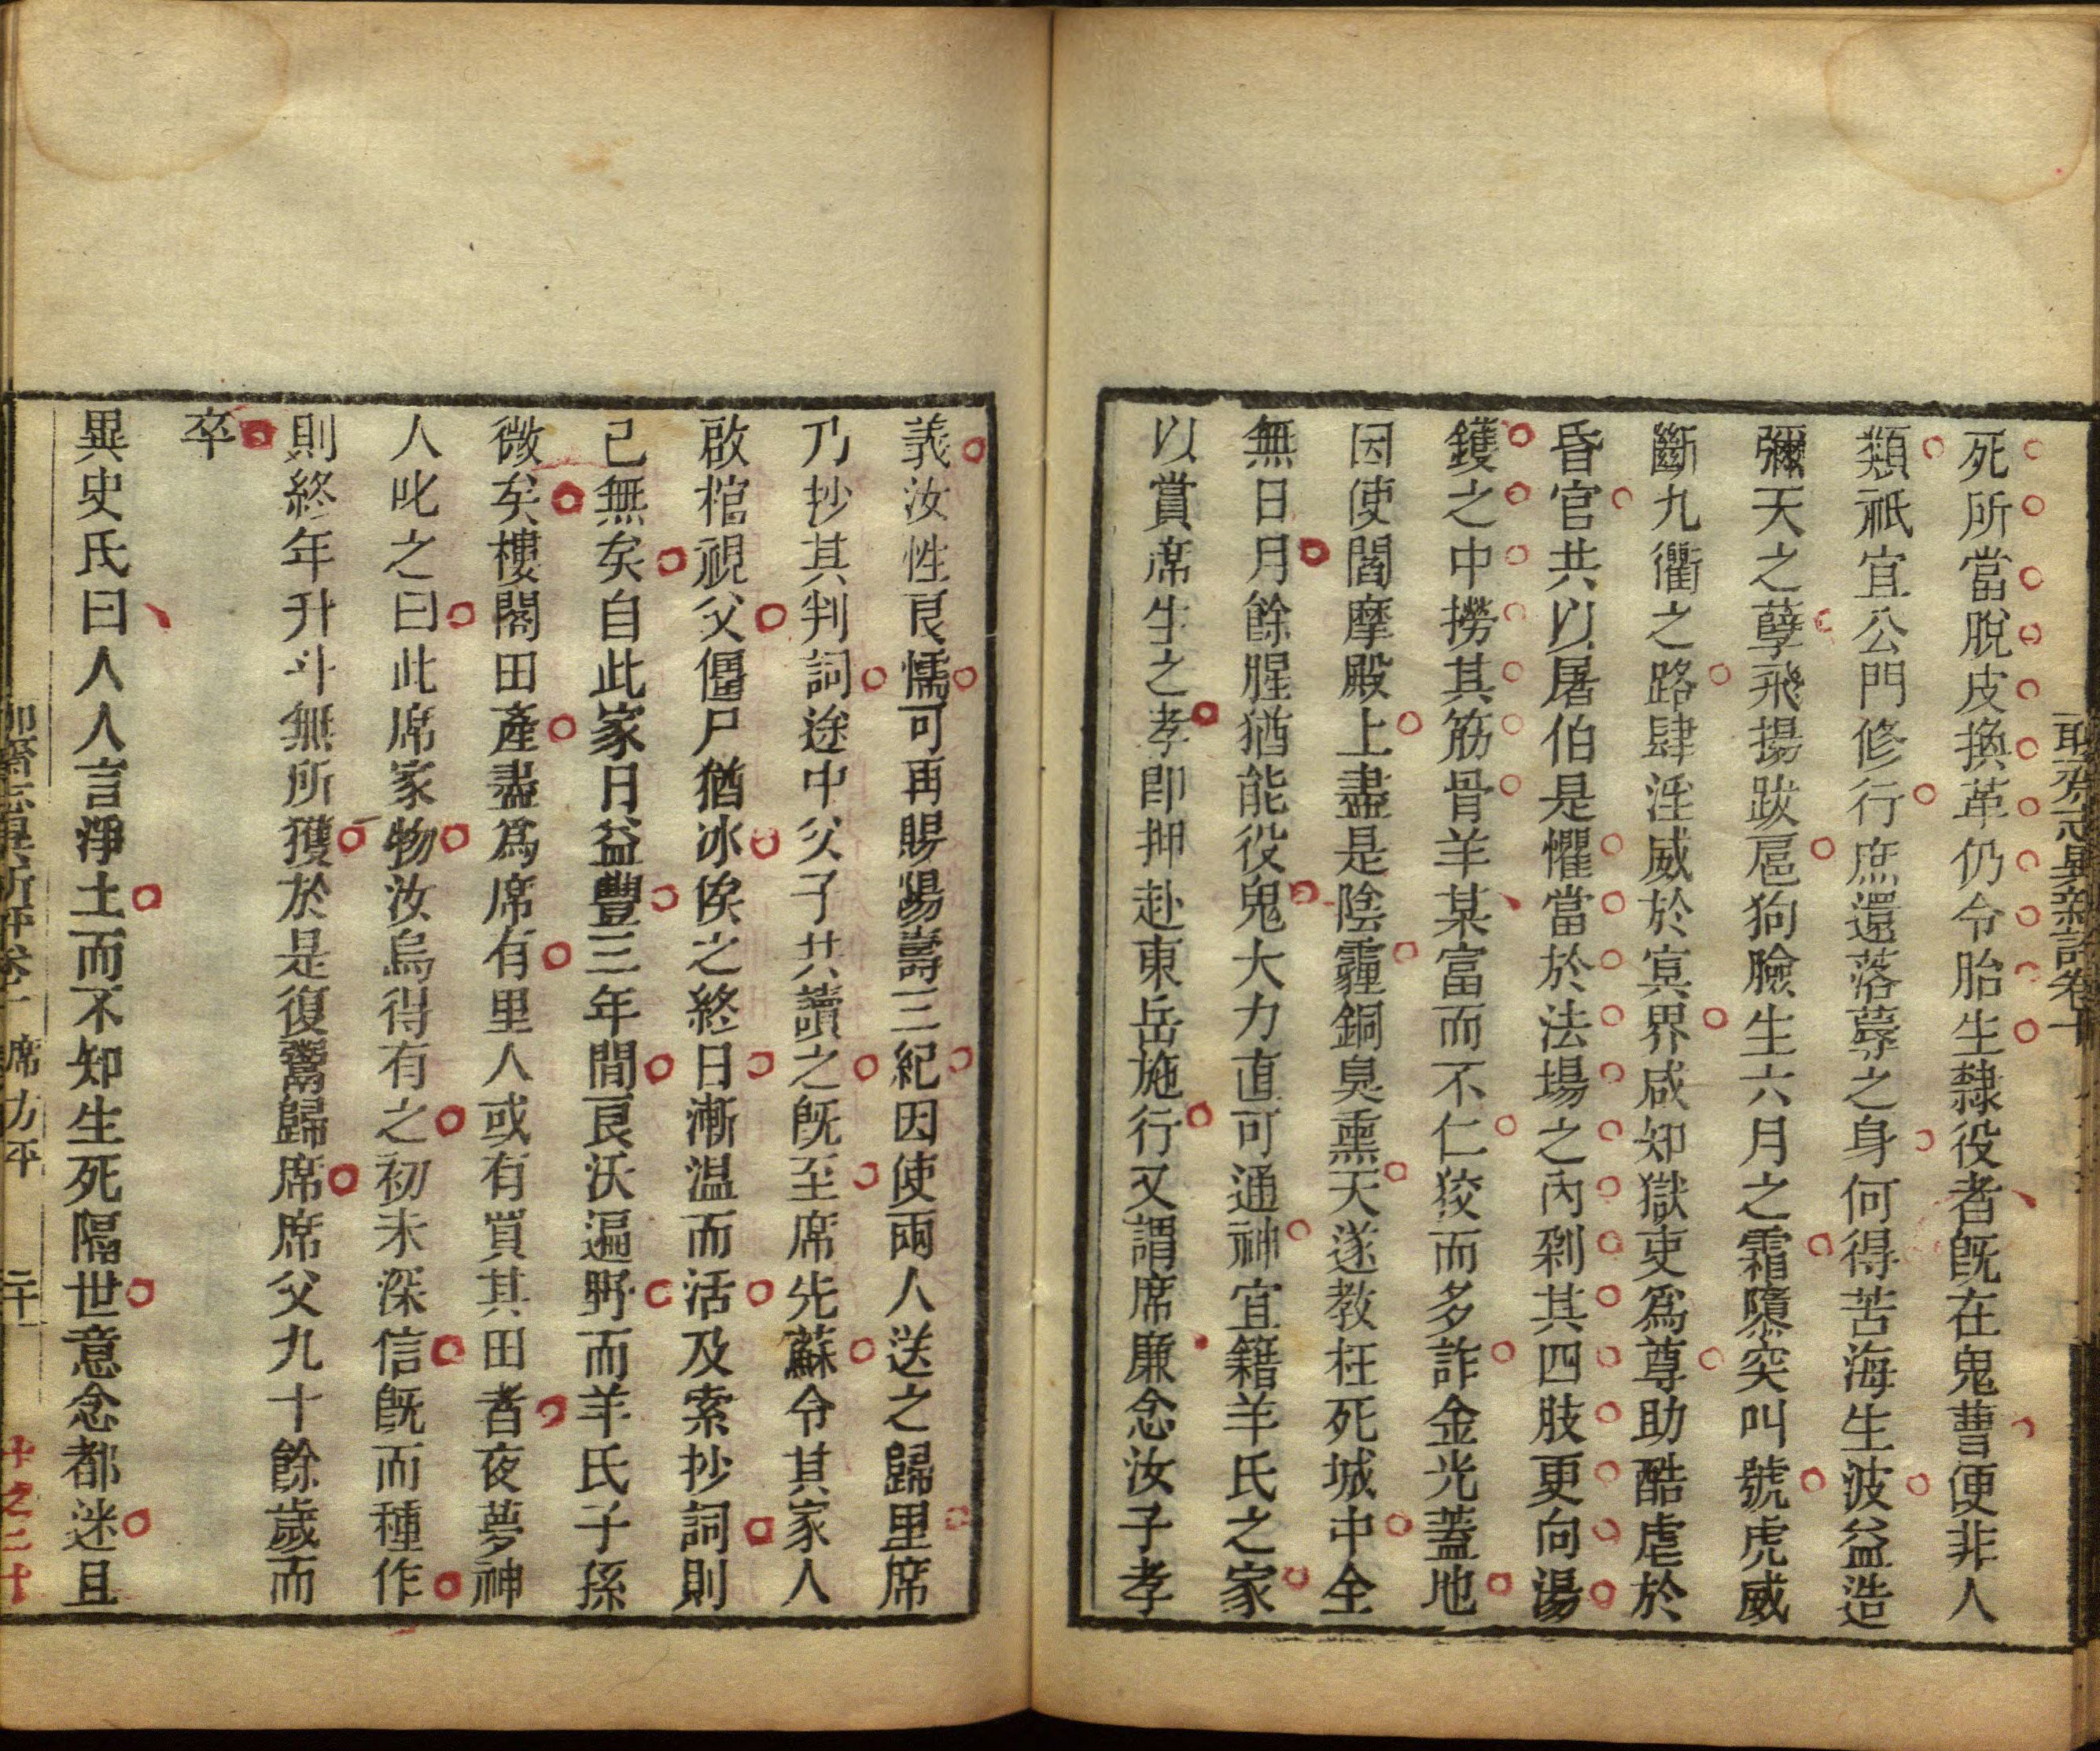 聊齋志異新評卷十
死所當脫皮換革仍令胎生隸役者既在鬼曹便非人
類祇宜公門修行庶還落蓐之身何得苦海生波益造
彌天之孽飛揚跋扈狗臉生六月之霜隳突叫號虎威
斷九衢之路肆淫威於冥界咸知獄吏爲尊助酷虐於
昏官共以屠伯是懼當於法場之內剁其四肢更向湯
鑊之中撈其筋骨羊某富而不仁狡而多詐金光蓋地
因使閻摩殿上盡是陰霾銅臭熏天遂教枉死城中全
無日月餘腥猶能役鬼大力直可通神宜籍羊氏之家
以賞席生之孝即押赴東岳施行又謂席廉念汝子孝
義汝性良懦可再賜陽壽三紀因使兩人送之歸里席
乃抄其判詞途中父子共讀之既至席先蘇令其家人
啟棺視父僵尸猶冰俟之終日漸温而活及索抄詞則
已無矣自此家日益豐三年間良沃遍野而羊氏子孫
微矣樓閣田產盡爲席有里人或有買其田者夜夢神
人叱之曰此席家物汝烏得有之初未深信既而種作
則終年升斗無所獲於是復鬻歸席席父九十餘歲而
卒
異史氏曰人人言淨土而不知生死隔世意念都迷且
聊齋志異新評卷十 席方平 二十
十之二十